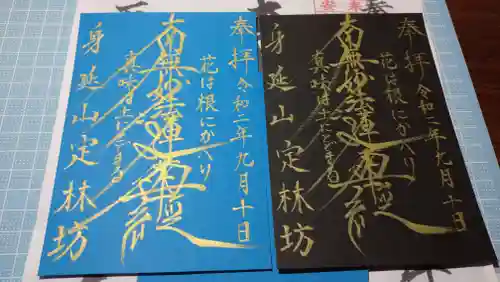 奉拝 令和二年九月十日
花は根にかへり
南無妙法蓮華経
真味は土にとどまる
身延山 定林坊
奉拝 令和二年九月十日
花は根にかへり
南無妙法蓮華経
真味は土にとどまる
身延山 定林坊